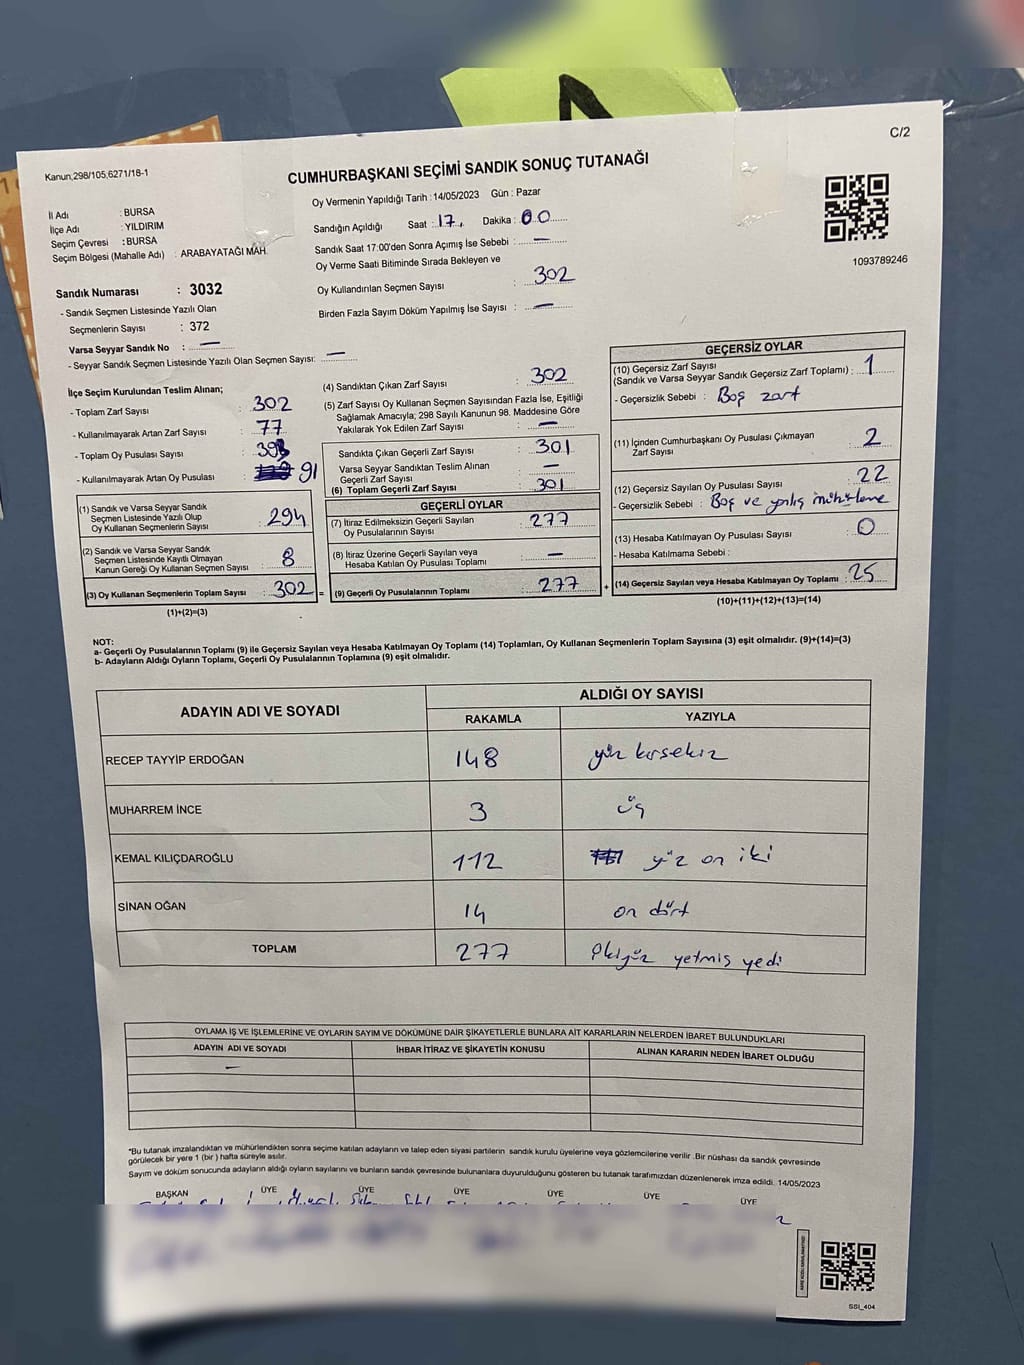 C/2
Kanun;298/105,6271/18-1
CUMHURBAŞKANI SEÇİMİ SANDIK SONUÇ TUTANAĞI
Oy Vermenin Yapıldığı Tarih :14/05/2023 Gün : Pazar
İl Adı : BURSA
İlçe Adı : YILDIRIM
Seçim Çevresi : BURSA
Seçim Bölgesi (Mahalle Adı) : ARABAYATAĞI MAH.
Sandığın Açıldığı Saat : 17, Dakika : 00
Sandık Saat 17:00'den Sonra Açımış İse Sebebi : —
Oy Verme Saati Bitiminde Sırada Bekleyen ve
Oy Kullandırılan Seçmen Sayısı : 302
Birden Fazla Sayım Döküm Yapılmış İse Sayısı : —
1093789246
Sandık Numarası : 3032
- Sandık Seçmen Listesinde Yazılı Olan
Seçmenlerin Sayısı : 372
Varsa Seyyar Sandık No : —
- Seyyar Sandık Seçmen Listesinde Yazılı Olan Seçmen Sayısı: —
İlçe Seçim Kurulundan Teslim Alınan;
- Toplam Zarf Sayısı : 302
- Kullanılmayarak Artan Zarf Sayısı : 77
- Toplam Oy Pusulası Sayısı :
- Kullanılmayarak Artan Oy Pusulası : 91
(1) Sandık ve Varsa Seyyar Sandık
Seçmen Listesinde Yazılı Olup
Oy Kullanan Seçmenlerin Sayısı : 294
(2) Sandık ve Varsa Seyyar Sandık
Seçmen Listesinde Kayıtlı Olmayan
Kanun Gereği Oy Kullanan Seçmen Sayısı : 8
(3) Oy Kullanan Seçmenlerin Toplam Sayısı : 302 =
(1)+(2)=(3)
(4) Sandıktan Çıkan Zarf Sayısı : 302
(5) Zarf Sayısı Oy Kullanan Seçmen Sayısından Fazla İse, Eşitliği
Sağlamak Amacıyla; 298 Sayılı Kanunun 98. Maddesine Göre
Yakılarak Yok Edilen Zarf Sayısı : —
Sandıkta Çıkan Geçerli Zarf Sayısı : 301
Varsa Seyyar Sandıktan Teslim Alınan
Geçerli Zarf Sayısı : —
(6) Toplam Geçerli Zarf Sayısı : 301
GEÇERLİ OYLAR
(7) İtiraz Edilmeksizin Geçerli Sayılan
Oy Pusulalarının Sayısı : 277
(8) İtiraz Üzerine Geçerli Sayılan veya
Hesaba Katılan Oy Pusulası Toplamı : —
(9) Geçerli Oy Pusulalarının Toplamı : 277 +
GEÇERSİZ OYLAR
(10) Geçersiz Zarf Sayısı
(Sandık ve Varsa Seyyar Sandık Geçersiz Zarf Toplamı) : 1
- Geçersizlik Sebebi : Boş zarf
(11) İçinden Cumhurbaşkanı Oy Pusulası Çıkmayan
Zarf Sayısı : 2
(12) Geçersiz Sayılan Oy Pusulası Sayısı : 22
- Geçersizlik Sebebi : Boş ve yanlış mühürleme
(13) Hesaba Katılmayan Oy Pusulası Sayısı : 0
- Hesaba Katılmama Sebebi :
(14) Geçersiz Sayılan veya Hesaba Katılmayan Oy Toplamı : 25
(10)+(11)+(12)+(13)=(14)
NOT:
a- Geçerli Oy Pusulalarının Toplamı (9) ile Geçersiz Sayılan veya Hesaba Katılmayan Oy Toplamı (14) Toplamları, Oy Kullanan Seçmenlerin Toplam Sayısına (3) eşit olmalıdır. (9)+(14)=(3)
b- Adayların Aldığı Oyların Toplamı, Geçerli Oy Pusulalarının Toplamına (9) eşit olmalıdır.
ADAYIN ADI VE SOYADI ALDIĞI OY SAYISI
RAKAMLA YAZIYLA
RECEP TAYYİP ERDOĞAN 148 yüz kırsekiz
MUHARREM İNCE 3 üç
KEMAL KILIÇDAROĞLU 112 yüz on iki
SİNAN OĞAN 14 on dört
TOPLAM 277 ikiyüz yetmiş yedi
OYLAMA İŞ VE İŞLEMLERİNE VE OYLARIN SAYIM VE DÖKÜMÜNE DAİR ŞİKAYETLERLE BUNLARA AİT KARARLARIN NELERDEN İBARET BULUNDUKLARI
ADAYIN ADI VE SOYADI İHBAR İTİRAZ VE ŞİKAYETİN KONUSU ALINAN KARARIN NEDEN İBARET OLDUĞU
—
*Bu tutanak imzalandıktan ve mühürlendikten sonra seçime katılan adayların ve talep eden siyasi partilerin sandık kurulu üyelerine veya gözlemcilerine verilir .Bir nüshası da sandık çevresinde
görülecek bir yere 1 (bir ) hafta süreyle asılır.
Sayım ve döküm sonucunda adayların aldığı oyların sayılarını ve bunların sandık çevresinde bulunanlara duyurulduğunu gösteren bu tutanak tarafımızdan düzenlenerek imza edildi. 14/05/2023
BAŞKAN ÜYE ÜYE ÜYE ÜYE ÜYE ÜYE
SSI_404